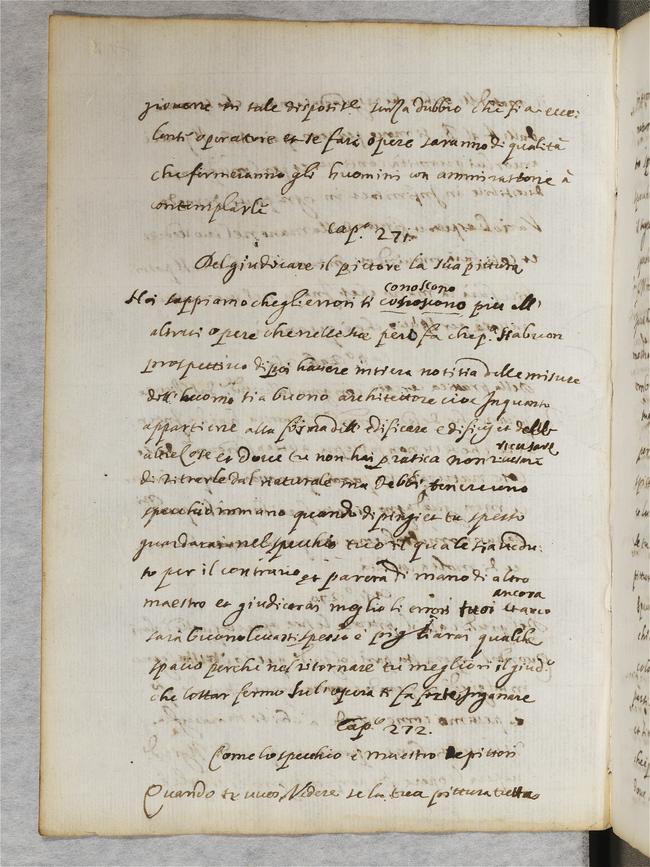 giovane in tale dispositne senza dubbio che fia ecce:
lente operatore et se farà opere saranno di qualità
che fermeranno gli huomini con ammiratione à
contemplarle
Cap.° 271.
Del giudicare il pittore la sua pittura
conoscono
Noi sappiamo che gli errori si conoscono più nell'
altrui opere che nelle sue però fa che p.ª sia buon
prospettivo di poi havere intiera notitia delle misure
dell'huomo sia buono architettore cioè In quanto
appartiene alla forma dell' edificare e difitij et dell'
altre Cose et Dove tu non hai pratica non
ricusare
di ritrarle dal naturale ma Debbi tenere uno
specchio mano quando dipingi et tu spesso
guardarai nel specchio tuo il quale sia vedu:
to per il contrario et parerà di mano di altro
maestro et giudicarai meglio li errori tuoi et
ancora
sarà buono levarsi spesso e pigliarai qualche
spatio perche nel ritornare tu megliori il giud.°
che lo star fermo su l'opera ti fa forte Inganare
Cap.° 272.
Come lo specchio è maestro de pittori
Quando tu vuoi Videre se la tua pittura tutta